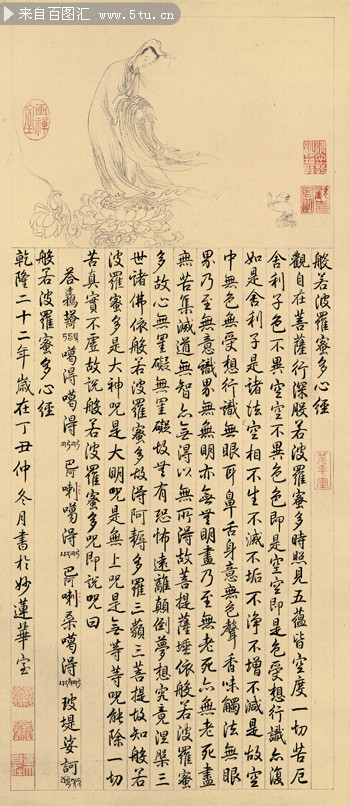 来自百图汇
www.5tu.cn
般若波羅蜜多心經
觀自在菩薩行深般若波羅蜜多時照見五蘊皆空度一切苦厄
舍利子色不異空空不異色色即是空空即是色受想行識亦復
如是舍利子是諸法空相不生不滅不垢不淨不增不減是故空
中無色無受想行識無眼耳鼻舌身意無色聲香味觸法無眼
界乃至無意識界無無明亦無無明盡乃至無老死亦無老死盡
無苦集滅道無智亦無得以無所得故菩提薩埵依般若波羅蜜
多故心無罣礙無罣礙故無有恐怖遠離顛倒夢想究竟涅槃三
世諸佛依般若波羅蜜多故得阿耨多羅三藐三菩提故知般若
波羅蜜多是大神咒是大明咒是無上咒是無等等咒能除一切
苦真實不虛故說般若波羅蜜多咒即說咒曰
噶得噶得巴阿喇噶得巴阿喇桑噶得玻提娑訶
般若波羅蜜多心經
乾隆二十二年歲在丁丑仲冬月書於妙蓮華室